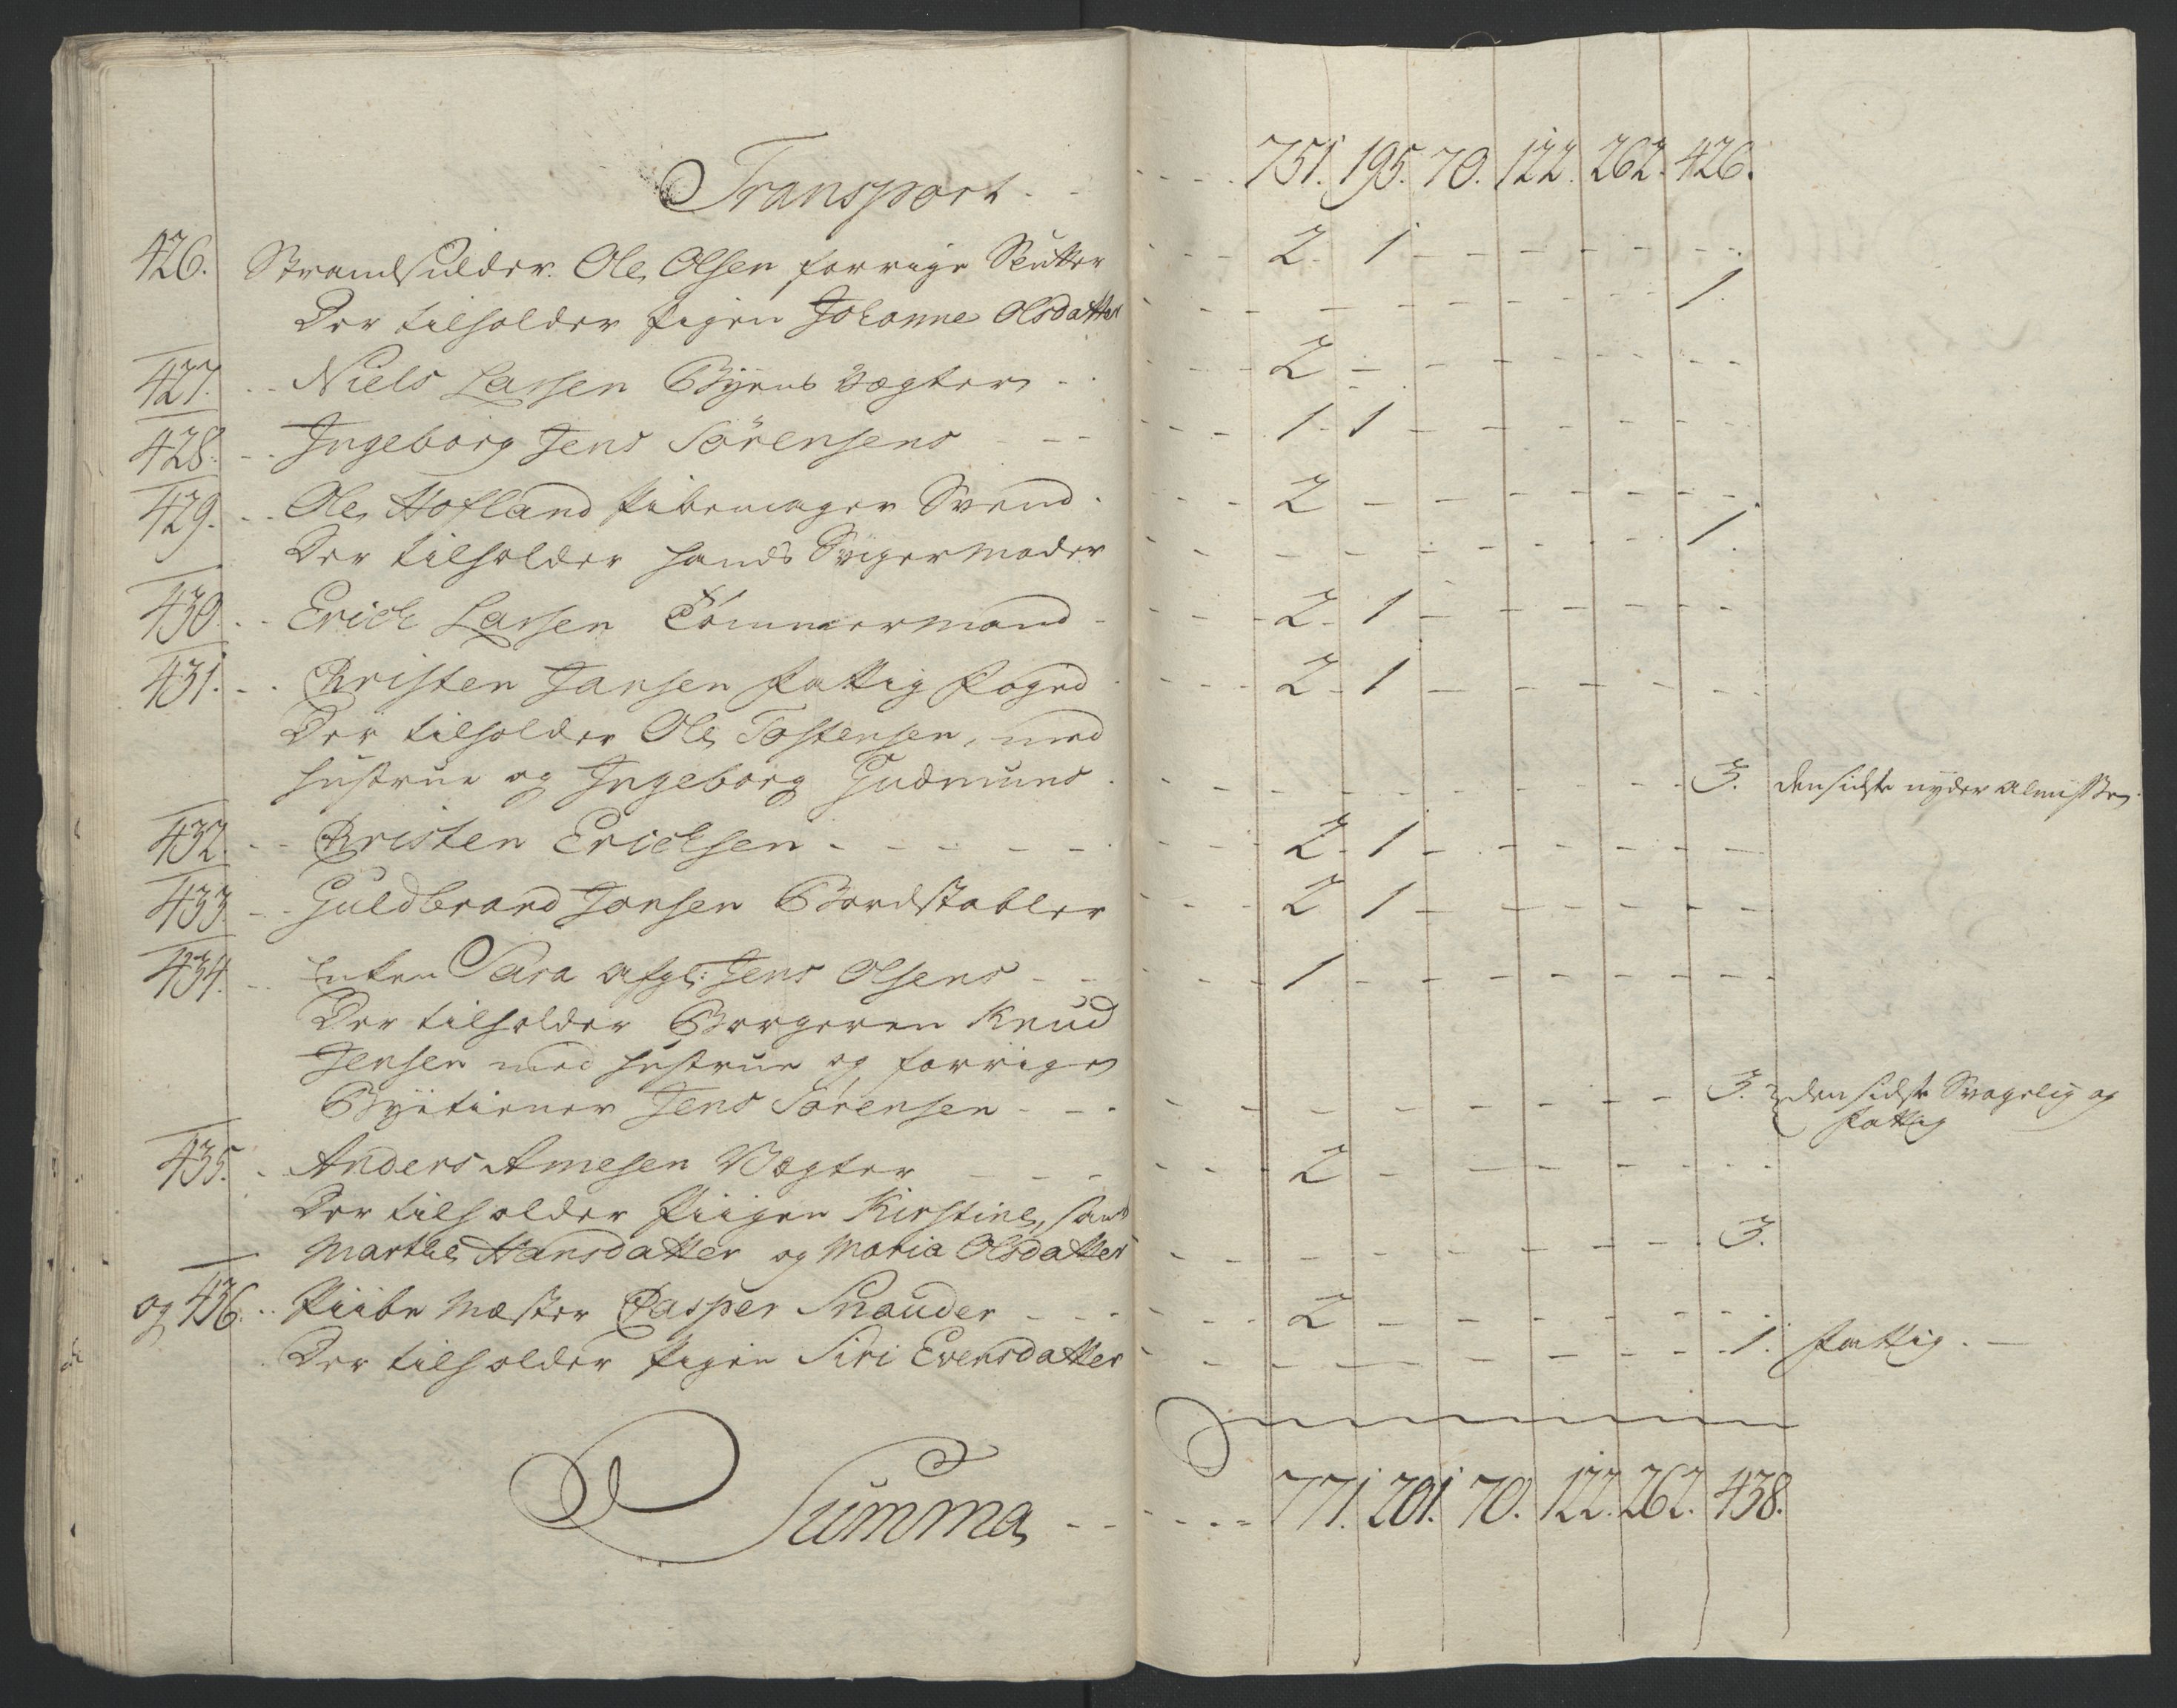 Transport - - - - - 751. 195. 70. 122. 262. 426.
426. Strandsidder Ole Olsen forrige Slutter - - - 2 - 1 - - - - - - -
Der tilholder Pigen Johanne Olsdatter - - - - - - - - 1.
427. - - Niels Larsen Byens Vægter - - - - 2 - - - - - - -
428. - - Ingeborg Jens Sörensens - - - - - - 1 - 1 - - - - - - -
429. - - Ole Hofland Pibemager Svend - - - 2 - - - - - - -
Der tilholder hands Svigermoder - - - - - - - - 1.
430. - - Erich Larsen Tömmermand - - - - 2 - 1 - - - - - -
431. - - Christen Jansen fattig foged - - - - 2 - 1 - - - - - -
Der tilholder Ole Tostensen, med
hustrue og Ingeborg Gudmunds - - - - - - - - - 3. den sidste nyder Almisse
432. - - Christen Erichsen - - - - - - - - - 2 - 1 - - - - - -
433. - - Guldbrand Jonsen Bordstabler - - - 2 1 - - - - - -
434. - - Enken Sara afgl: Jens Olsens - - - - - 1 - - - - - - -
Der tilholder Borgeren Knud
Jensen med hustrue og forrige
Bytiener Jens Sörensen - - - - - - - - - - 3. den sidste Svagelig og
fattig
435. - Anders Amesen Vægter - - - - - - 2 - - - - - - -
Der tilholder Piigen Kirstine, samt
Marthe Hansdatter og Maria Olsdatter - - - - - - - - 3.
og 436. - - Piibe Mæster Casper Snauder - - - - - - 2 - - - - - - -
Der tilholder Pigen Siri Evensdatter - - - - - - - - - 1. fattig. -
Summa - - - - - - 771. 201. 70. 122. 262. 438.